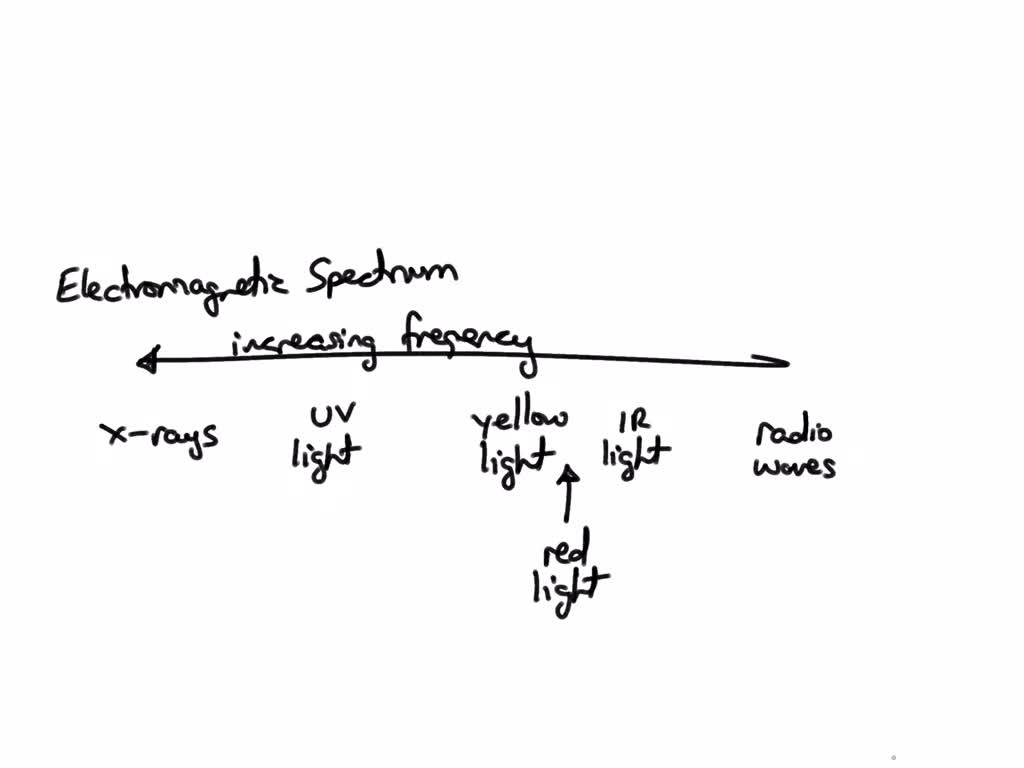 Electromagnetic Spectrum
increasing freqency
x-rays
UV
light
yellow
light
IR
light
radio
waves
red
light